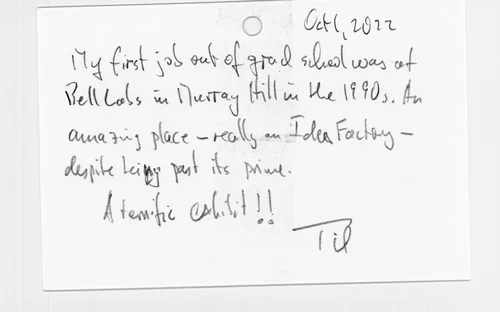 Oct 1, 2022
My first job out of grad school was at
Bell Labs in Murray Hill in the 1990s. An
amazing place – really an Idea Factory –
despite being past its prime.
A terrific exhibit!!
Til